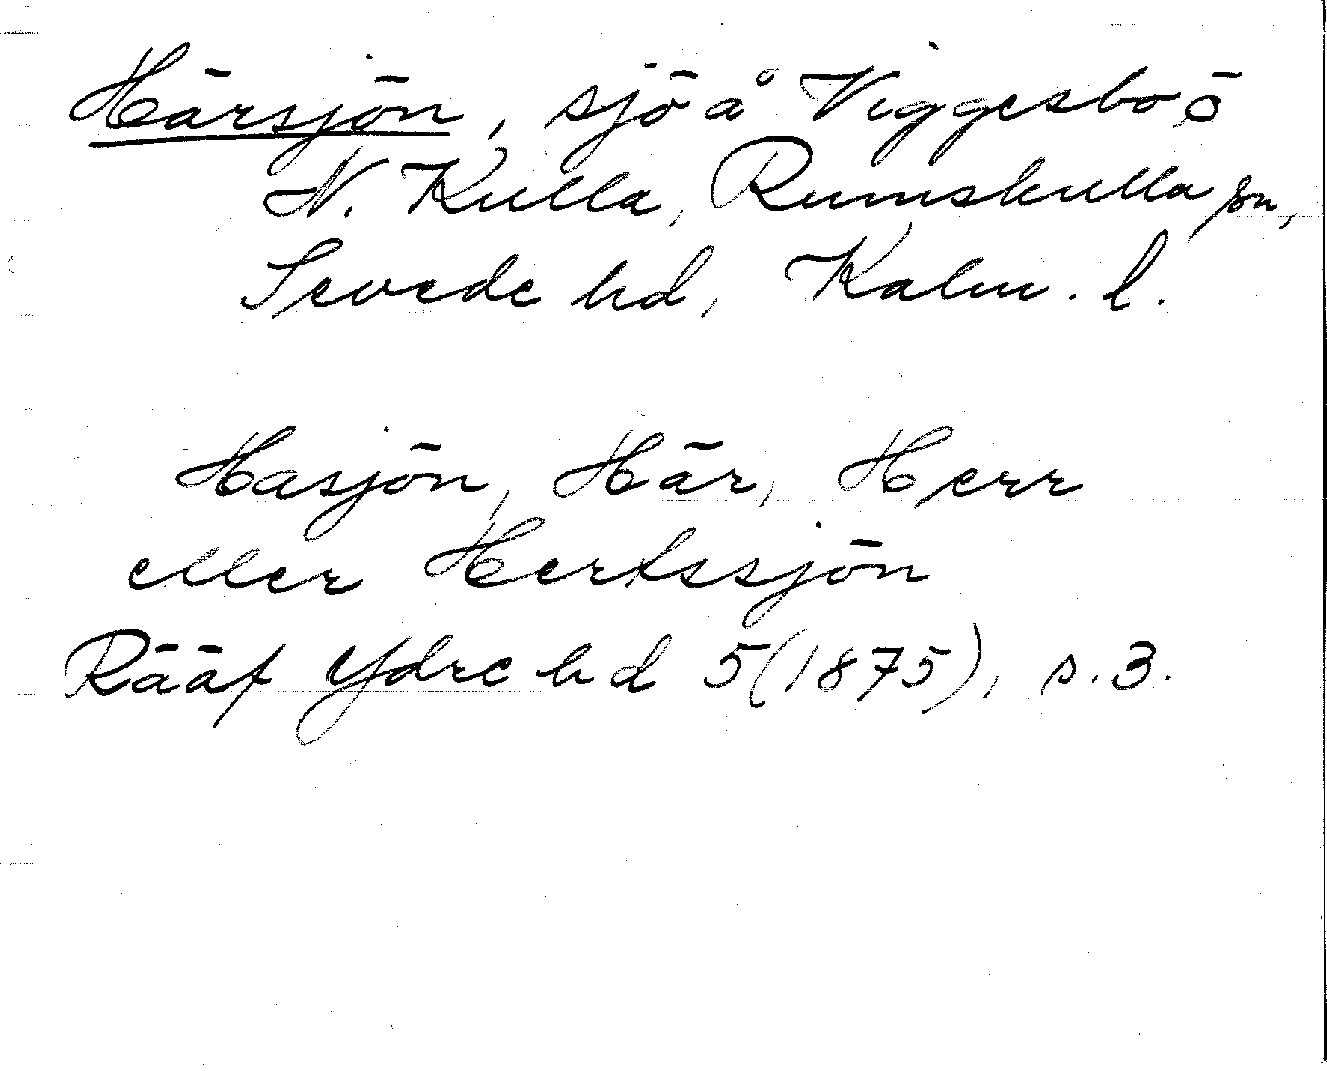 Härsjön, sjö å Viggesbo o
N. Kulla, Rumskulla sn,
Sevede hd, Kalm. l.
Hasjön, Här, Herr
eller Hertssjön
Rääf Ydre hd 5(1875), s.3.